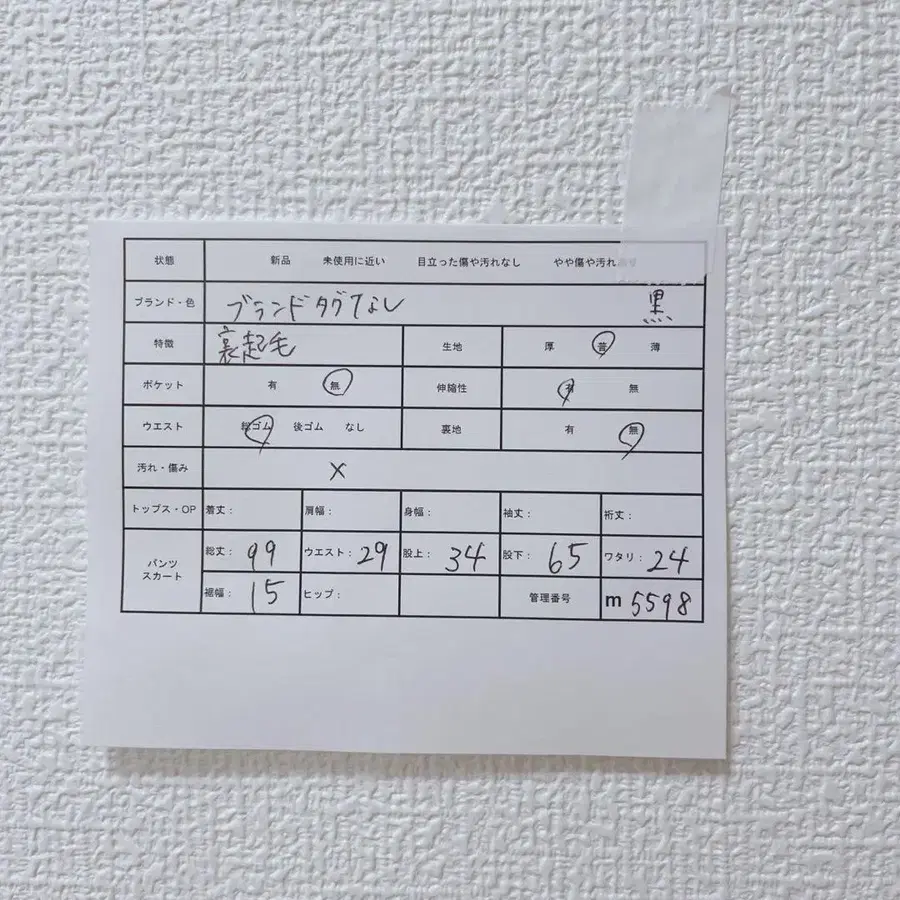 状態 新品 未使用に近い 目立った傷や汚れなし やや傷や汚れあり
ブランド・色 ブランドタグなし 黒
特徴 裏起毛 生地 厚 普 薄
ポケット 有 無 伸縮性 有 無
ウエスト 総ゴム 後ゴム なし 裏地 有 無
汚れ・傷み ×
トップス・OP 着丈: 肩幅: 身幅: 袖丈: 裄丈:
パンツ スカート 総丈: 99 ウエスト: 29 股上: 34 股下: 65 ワタリ: 24
裾幅: 15 ヒップ: 管理番号 m 5598